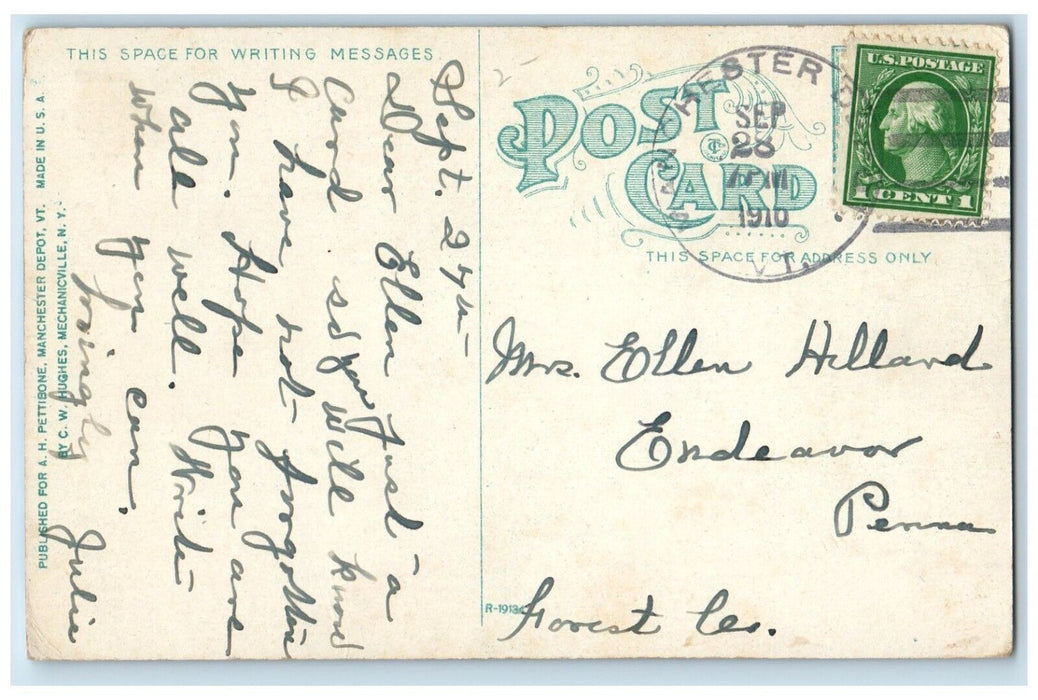 THIS SPACE FOR WRITING MESSAGES
Sept. 27th
Dear Ellen just a
card. so you will know
I have not forgotten
you. Hope you are
all well. Write
when you can.
Lovingly
Julia
PUBLISHED FOR A. H. PETTIBONE, MANCHESTER DEPOT, VT. MADE IN U. S. A.
BY C. W. HUGHES, MECHANICVILLE, N. Y.
POST CARD
THIS SPACE FOR ADDRESS ONLY
HESTER
SEP
28
1910
VT.
U.S. POSTAGE
1 CENT 1
Mrs. Ellen Hilland
Endeavor
Penna
R-1913
Forest Co.